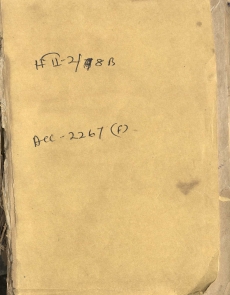 H II-2/78B
Acc-2267 (F).